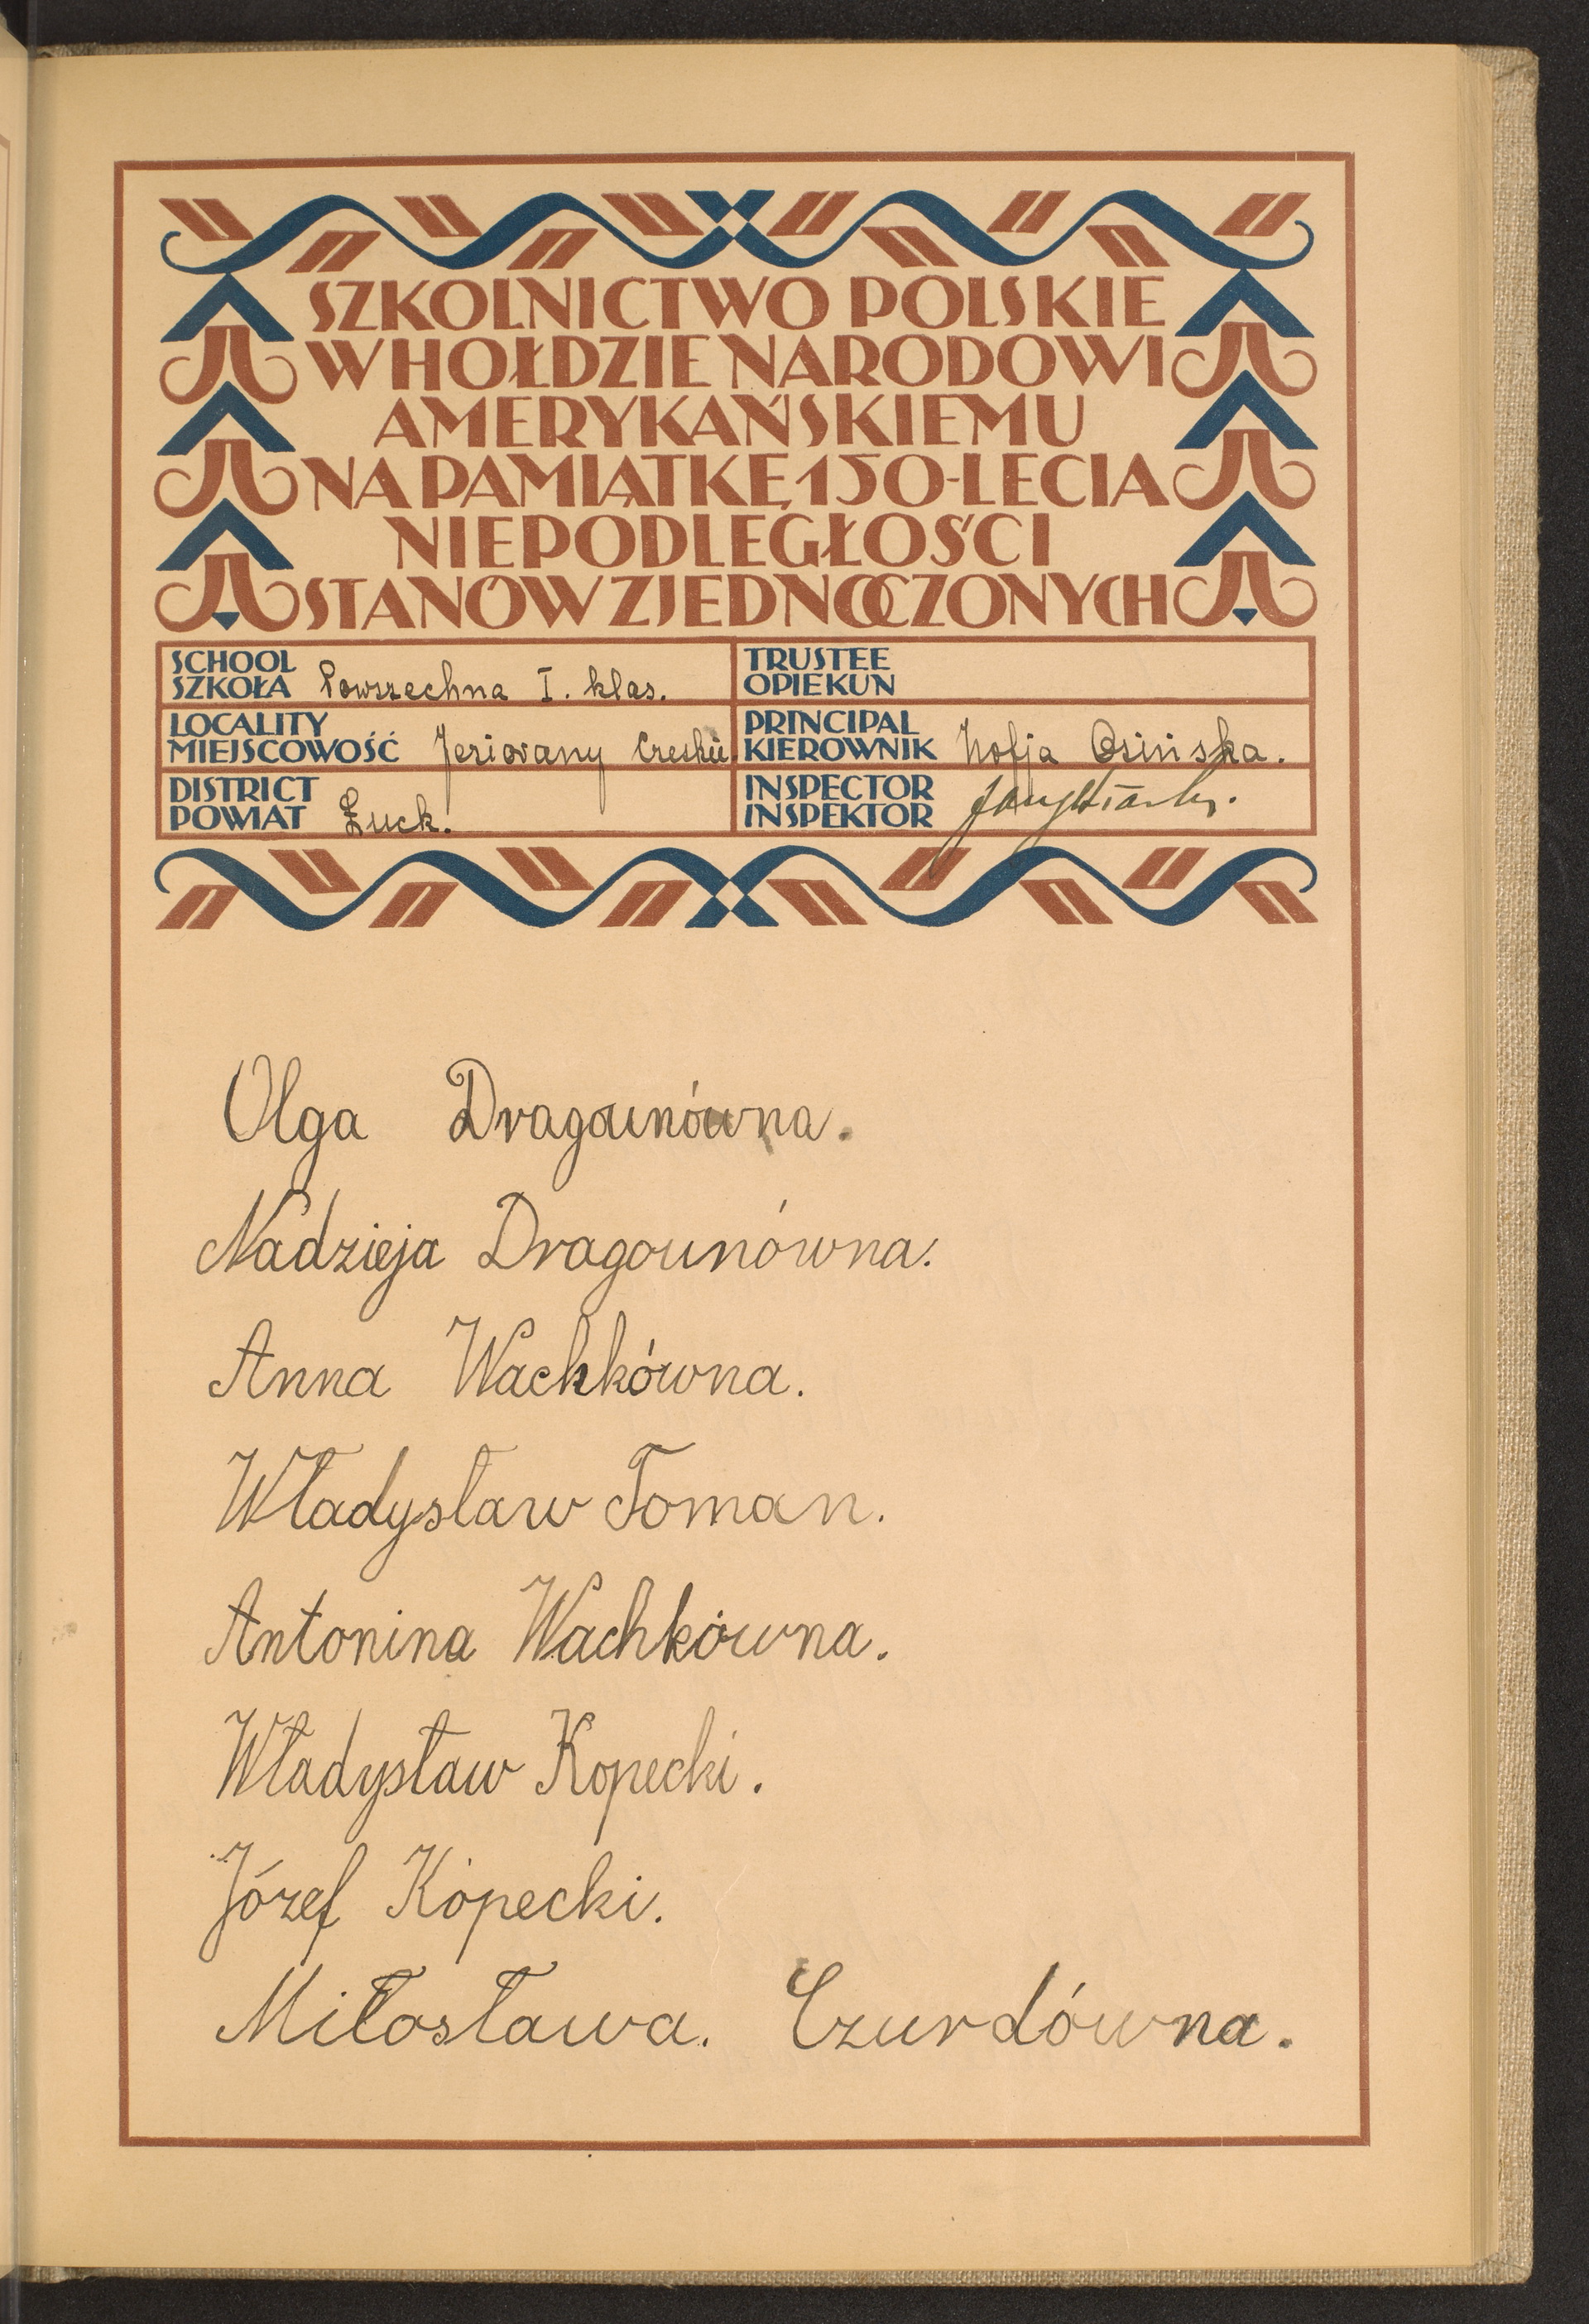 SZKOLNICTWO POLSKIE
W HOŁDZIE NARODOWI
AMERYKAŃSKIEMU
NA PAMIĄTKĘ 150-LECIA
NIEPODLEGŁOŚCI
STANÓW ZJEDNOCZONYCH
SCHOOL
SZKOŁA Powszechna I. klas.
TRUSTEE
OPIEKUN
LOCALITY
MIEJSCOWOŚĆ Jeziorany Czeskie
PRINCIPAL
KIEROWNIK Zofja Osińska.
DISTRICT
POWIAT Łuck.
INSPECTOR
INSPEKTOR
Olga Dragounówna.
Nadzieja Dragounówna.
Anna Wachkówna.
Władysław Toman.
Antonina Wachkówna.
Władysław Kopecki.
Józef Kopecki.
Miłosława. Czurdówna.